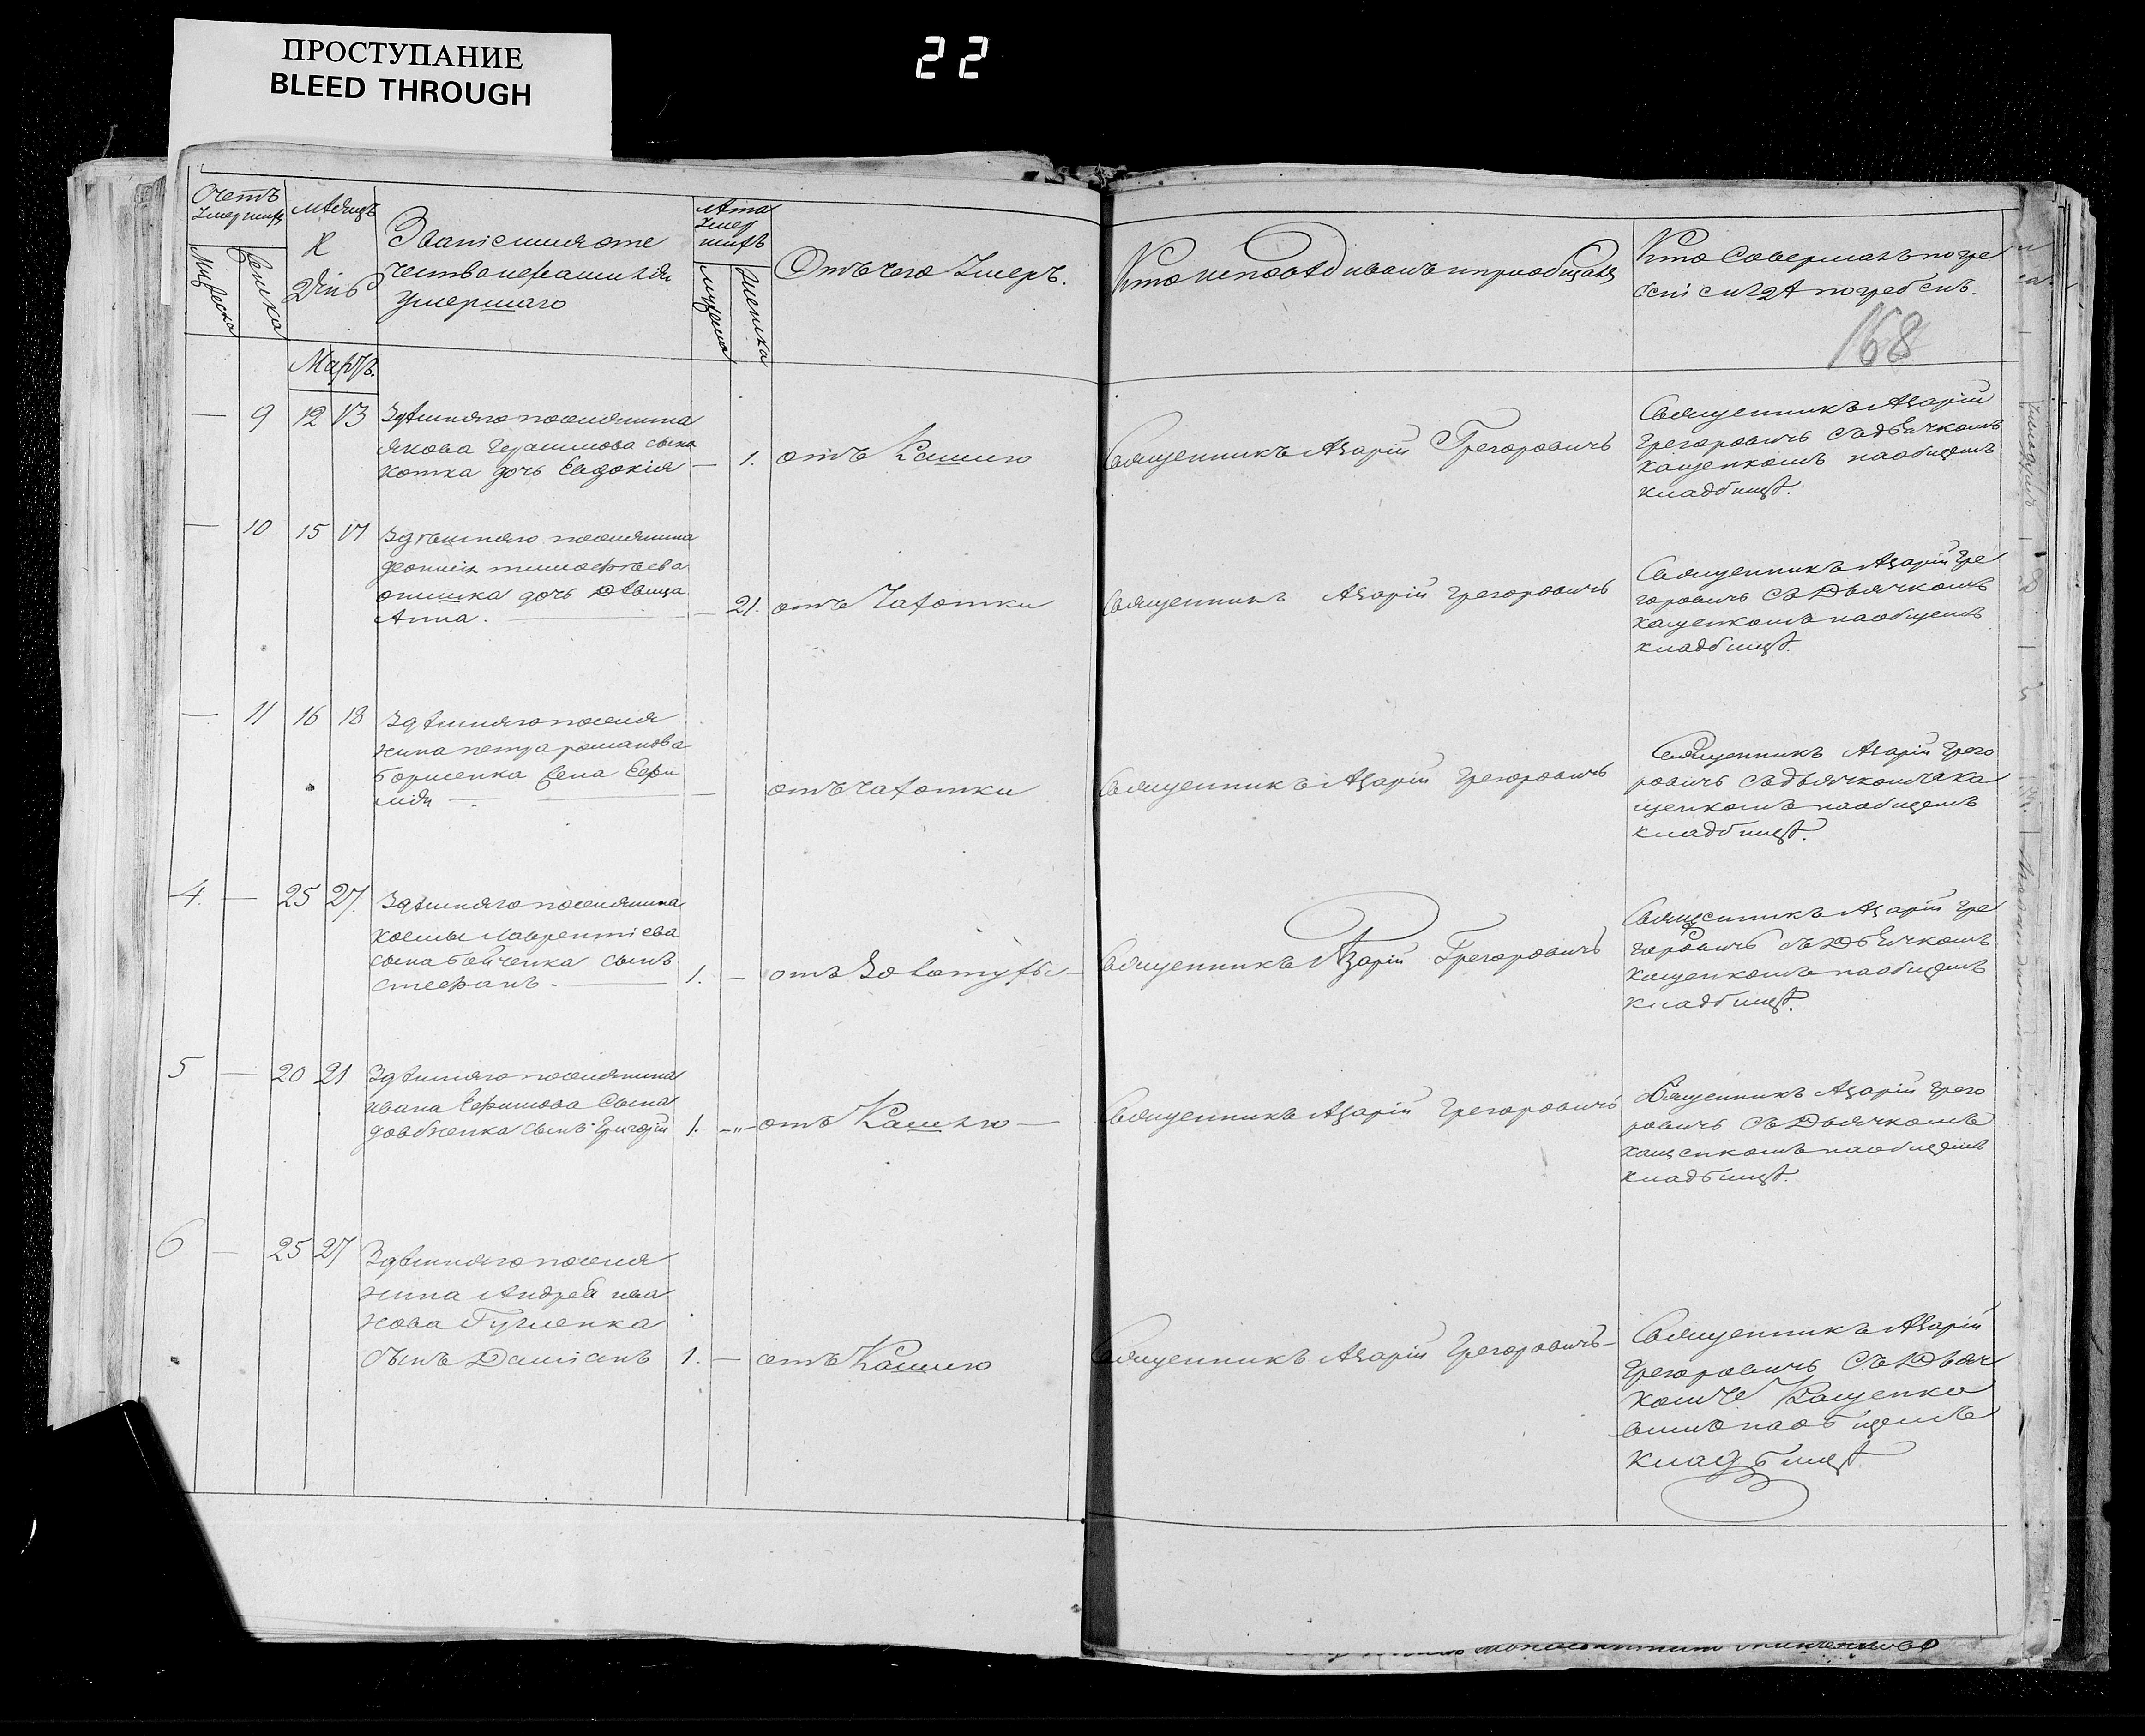 ПРОСТУПАНИЕ
BLEED THROUGH
22
Счетъ Умершихъ
Мужеска
Женска
Мѣсяцъ и День
Званіе имя оте
чество и фамилія
умершаго
Лѣта Умер шихъ
Мужеска
Женска
Отъ чего Умеръ.
Кто исповѣдивалъ и приобщалъ
Кто Совершалъ погре
беніе и гдѣ погребенъ.
168
Мартъ.
— 9 12 13
Здѣшняго поселянина
Якова Герасимова сына
Котка дочь Евдокія — 1. отъ Кашлю
Священникъ Азарій Грегоровичъ
Священникъ Азарій
Грегоровичъ съ дьячкомъ
Кащенкомъ на общемъ
кладбищѣ.
— 10 15 17
Здѣшняго поселянина
Леонтія Тимофѣева
Онишка дочь дѣвица
Анна. — 21. отъ Чахотки
Священникъ Азарій Грегоровичъ
Священникъ Азарій Гре
горовичъ Съ Дьячкомъ
Кащенкомъ на общемъ
кладбищѣ.
— 11 16 18
Здѣшняго поселя
нина Петра Романова
Борисенка жена Евфи
мія — отъ Чахотки
Священникъ Азарій Грегоровичъ
Священникъ Азарій Грего
ровичъ съ дьячкомъ Ка
щенкомъ на общемъ
кладбищѣ.
4. — 25 27.
Здѣшняго поселянина
Косьмы Лаврентіева
сына Бойченка сынъ
Стефанъ. 1. —
Священникъ Азарій Грегоровичъ
Священникъ Азарій Гре
горовичъ съ Дьячкомъ
Кащенкомъ на общемъ
кладбищѣ.
5 — 20 21
Здѣшняго поселянина
Ивана Ефимова Сына
Довбненка сынъ Григорій 1. — отъ Кашлю —
Священникъ Азарій Грегоровичъ
Священникъ Азарій Грего
ровичъ Съ Дьячкомъ
Кащенкомъ на общемъ
кладбищѣ.
6 — 25 27
Здѣшняго поселя
нина Андрея Ива
нова
Сынъ Даміанъ 1. — отъ Кашлю
Священникъ Азарій Грегоровичъ —
Священникъ Азарій
Грегоровичъ Съ Дьяч
комъ Кащенко
вимъ на общемъ
кладбищѣ